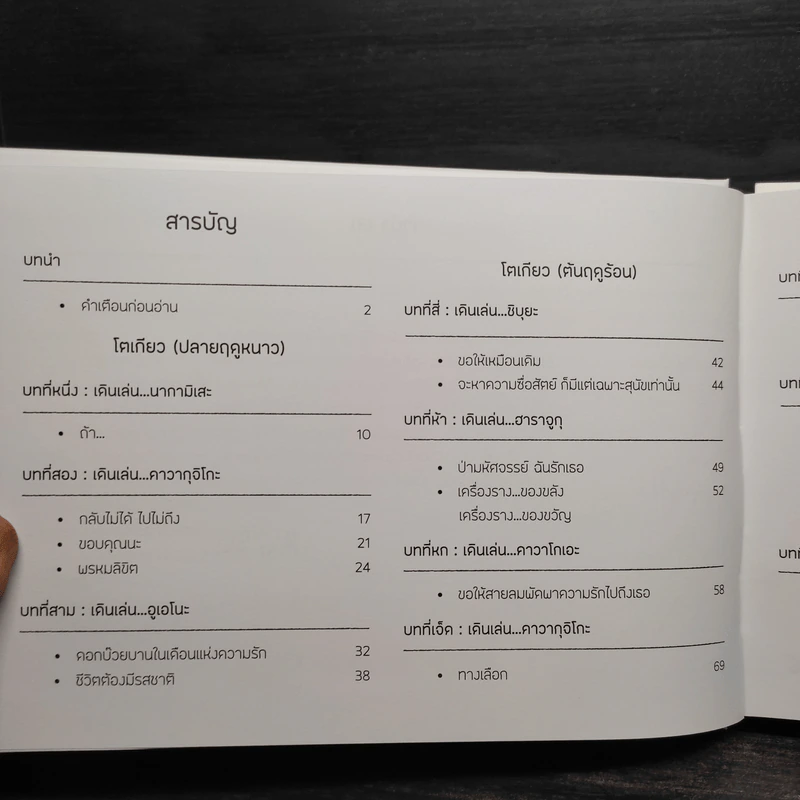 สารบัญ
บทนำ
• คำเตือนก่อนอ่าน 2
โตเกียว (ปลายฤดูหนาว)
บทที่หนึ่ง : เดินเล่น...นากาเมิเสะ
• ถ้า... 10
บทที่สอง : เดินเล่น...คาวากุจิโกะ
• กลับไม่ได้ ไปไม่ถึง 17
• ขอบคุณนะ 21
• พรหมลิขิต 24
บทที่สาม : เดินเล่น...อูเอโนะ
• ดอกบ๊วยบานในเดือนแห่งความรัก 32
• ชีวิตต้องมีรสชาติ 38
โตเกียว (ต้นฤดูร้อน)
บทที่สี่ : เดินเล่น...ชิบุยะ
• ขอให้เหมือนเดิม 42
• จะหาความซื่อสัตย์ ก็มีแต่เฉพาะสุนัขเท่านั้น 44
บทที่ห้า : เดินเล่น...ฮาราจูกุ
• ป่ามหัศจรรย์ ฉันรักเธอ 49
• เครื่องราง...ของขลัง 52
เครื่องราง...ของขวัญ
บทที่หก : เดินเล่น...คาวาโกเอะ
• ขอให้สายลมพัดพาความรักไปถึงเธอ 58
บทที่เจ็ด : เดินเล่น...คาวากุจิโกะ
• ทางเลือก 69